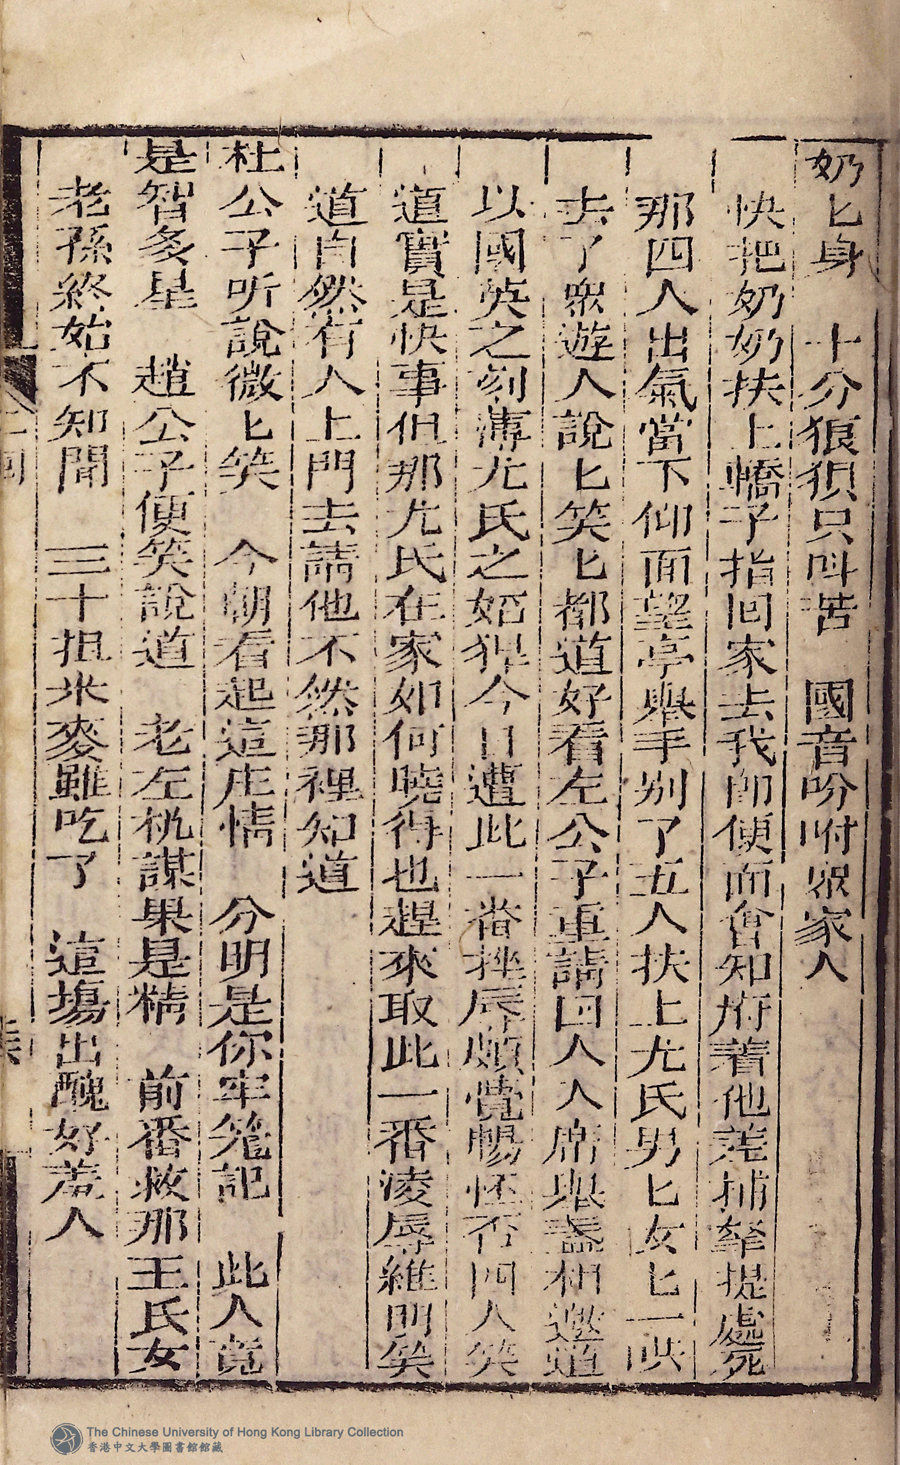 奶匕身　十分狼狽只呌苦　國音吩咐衆家人
快把奶奶扶上轎子指回家去我卽便面會知府着他差捕拏提處死
那四人出氣當下仰面望亭舉手别了五人扶上尤氏男匕女匕一哄
去了衆遊人說匕笑匕都道好看左公子重請回人入席舉盞相邀道
以國英之刻薄尤氏之妬猂今日遭此一番挫辱頗覺暢怀否四人笑
道實是快事但那尤氏在家如何曉得也趕來取此一番凌辱維明矣
道自然有人上門去請他不然那裡知道
杜公子听說微匕笑　今朝看起這庄情　分明是你牢笼記　此人竟
是智多星　趙公子便笑說道　老左机謀果是精　前番救那王氏女
老孫終始不知聞　三十担米麥雖吃了　這塲出醜好羞人
The Chinese University of Hong Kong Library Collection
香港中文大學圖書館館藏